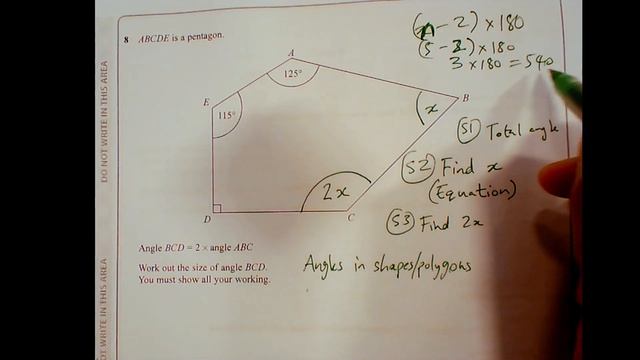 DO NOT WRITE IN THIS AREA
8 ABCDE is a pentagon.
(n - 2) × 180
(5 - 2) × 180
3 × 180 = 540
A
125°
E
115°
B
x
S1 Total angle
S2 Find x
(Equation)
2x
D
C
S3 Find 2x
Angle BCD = 2 × angle ABC
Work out the size of angle BCD.
You must show all your working.
Angles in shapes/polygons
WRITE IN THIS AREA